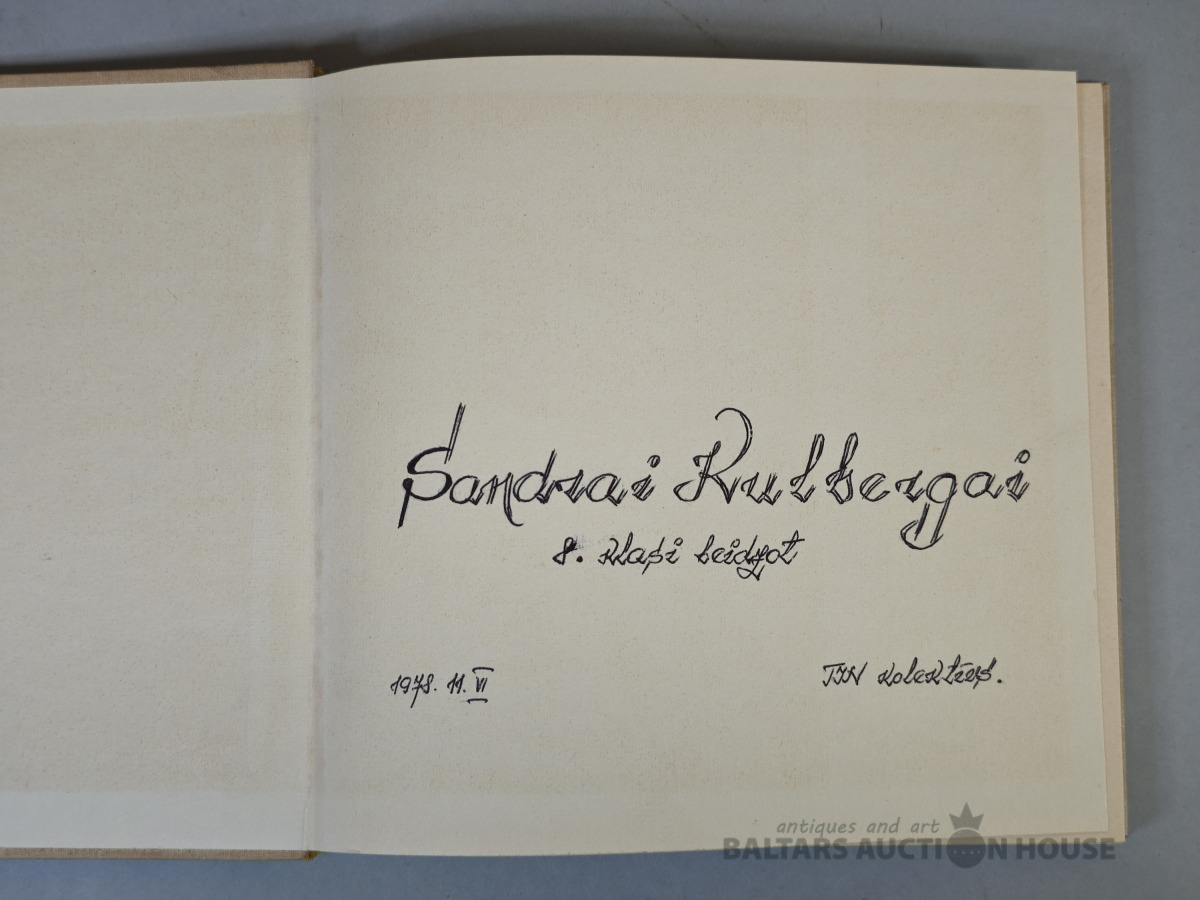 Sandrai Kulbergai
8. klasi beidzot
1978. 11. VI
TIN kolektīvs.
antiques and art
BALTARS AUCTION HOUSE